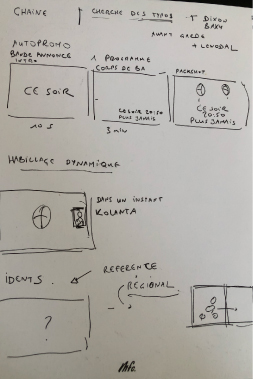 CHAINE
CHERCHE DES TYPOS
DIXON
BAXY
AVANT GARDE
+ LEVODAL
AUTOPROMO
BANDE ANNONCE
INTRO
1 PROGRAMME
CORPS DE BA
PACKSHOT
CE SOIR
CE SOIR 20:50
PLUS JAMAIS
CE SOIR
20:50
PLUS JAMAIS
10 S
3 min
HABILLAGE DYNAMIQUE
DANS UN INSTANT
KOLANTA
IDENTS
REFERENCE
REGIONAL
?